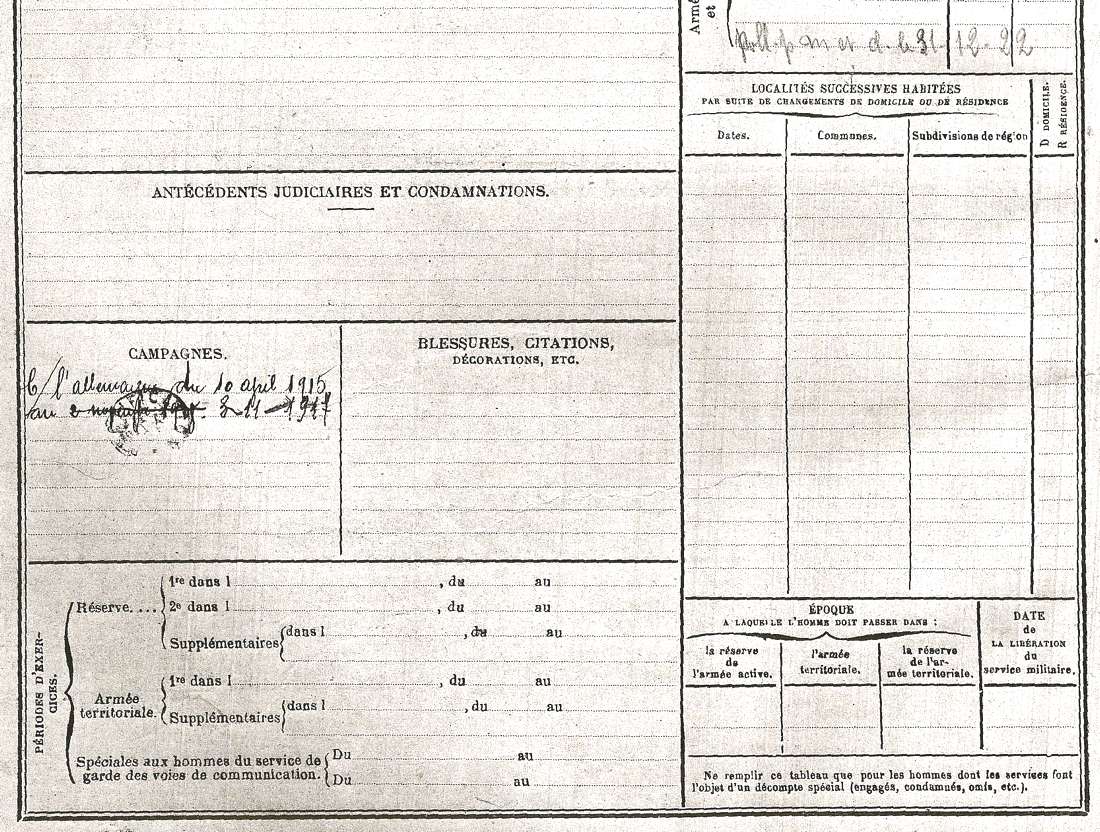 Armé
et
31 12-22
LOCALITÉS SUCCESSIVES HABITÉES
PAR SUITE DE CHANGEMENTS DE DOMICILE OU DE RÉSIDENCE
Dates.
Communes.
Subdivisions de région
D DOMICILE.
R RÉSIDENCE.
ANTÉCÉDENTS JUDICIAIRES ET CONDAMNATIONS.
CAMPAGNES.
C/ l'allemagne du 10 april 1915
au 2-11-1917
BLESSURES, CITATIONS,
DÉCORATIONS, ETC.
PÉRIODES D'EXER-
CICES.
Réserve....
1re dans l , du au
2e dans l , du au
Supplémentaires dans l , du au
Armée
territoriale.
1re dans l , du au
Supplémentaires dans l , du au
Spéciales aux hommes du service de
garde des voies de communication.
Du au
Du au
ÉPOQUE
A LAQUELLE L'HOMME DOIT PASSER DANS :
la réserve
de
l'armée active.
l'armée
territoriale.
la réserve
de l'ar-
mée territoriale.
DATE
de
LA LIBÉRATION
du
service militaire.
Ne remplir ce tableau que pour les hommes dont les services font
l'objet d'un décompte spécial (engagés, condamnés, omis, etc.).